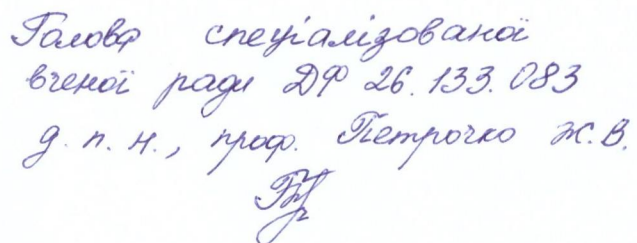 Голова спеціалізованої
вченої ради ДФ 26.133.083
д. п. н., проф. Петрочко Ж.В.